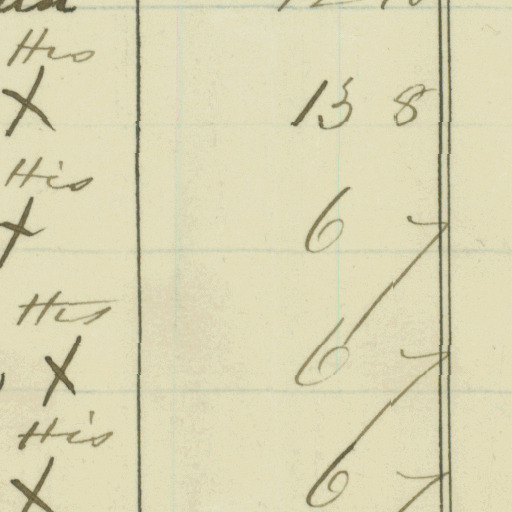 His
X 13 8
His
X 6 7
His
X 6 7
His
X 6 7